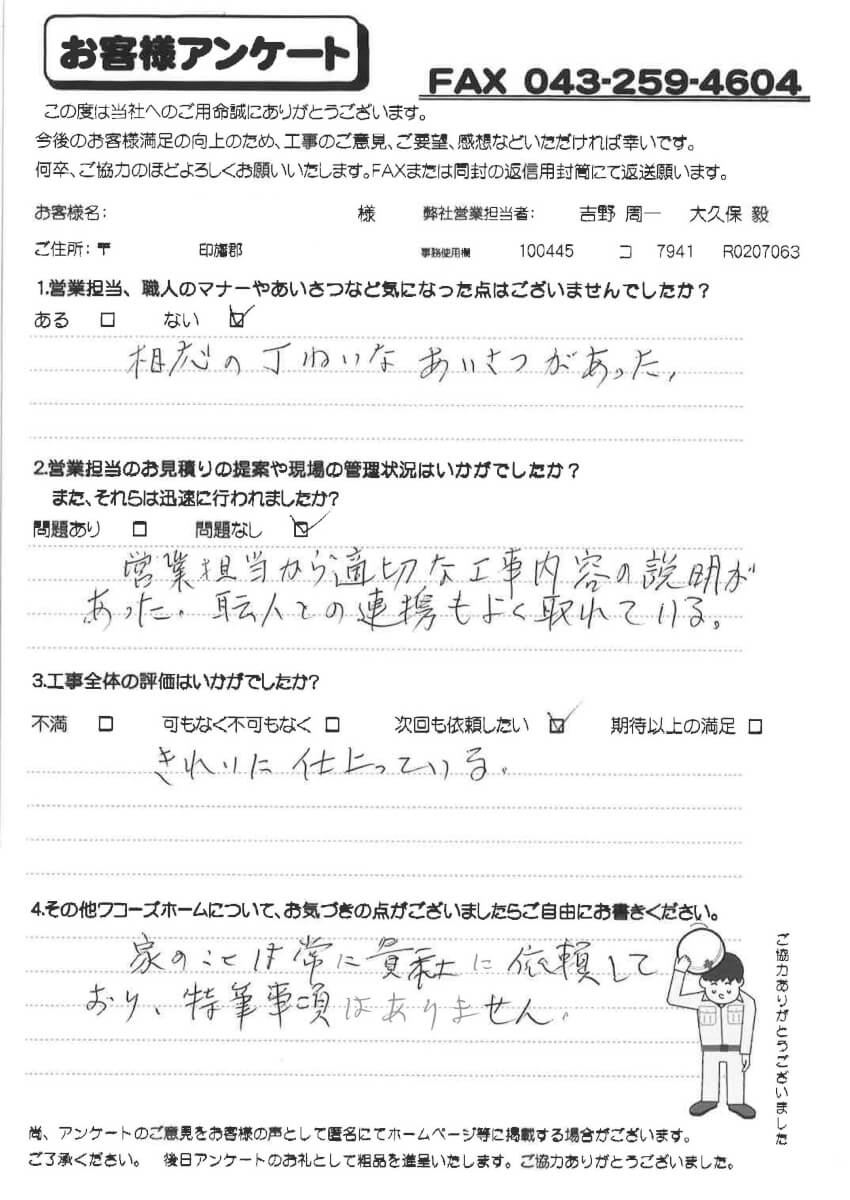 お客様アンケート
FAX 043-259-4604
この度は当社へのご用命誠にありがとうございます。
今後のお客様満足の向上のため、工事のご意見、ご要望、感想などいただければ幸いです。
何卒、ご協力のほどよろしくお願いいたします。FAXまたは同封の返信用封筒にて返送願います。
お客様名: 様 弊社営業担当者: 吉野 周一 大久保 毅
ご住所:〒 印旛郡 事務使用欄 100445 コ 7941 R0207063
1.営業担当、職人のマナーやあいさつなど気になった点はございませんでしたか？
ある □ ない ☑
相応の丁ねいなあいさつがあった。
2.営業担当のお見積りの提案や現場の管理状況はいかがでしたか？
また、それらは迅速に行われましたか?
問題あり □ 問題なし ☑
営業担当から適切な工事内容の説明が
あった。職人との連携もよく取れている。
3.工事全体の評価はいかがでしたか?
不満 □ 可もなく不可もなく □ 次回も依頼したい ☑ 期待以上の満足 □
きれいに仕上っている。
4.その他ワコーズホームについて、お気づきの点がございましたらご自由にお書きください。
家のことは常に貴社に依頼して
おり、特筆事項はありません。
ご協力ありがとうございました
尚、アンケートのご意見をお客様の声として匿名にてホームページ等に掲載する場合がございます。
ご了承ください。 後日アンケートのお礼として粗品を進呈いたします。ご協力ありがとうございました。